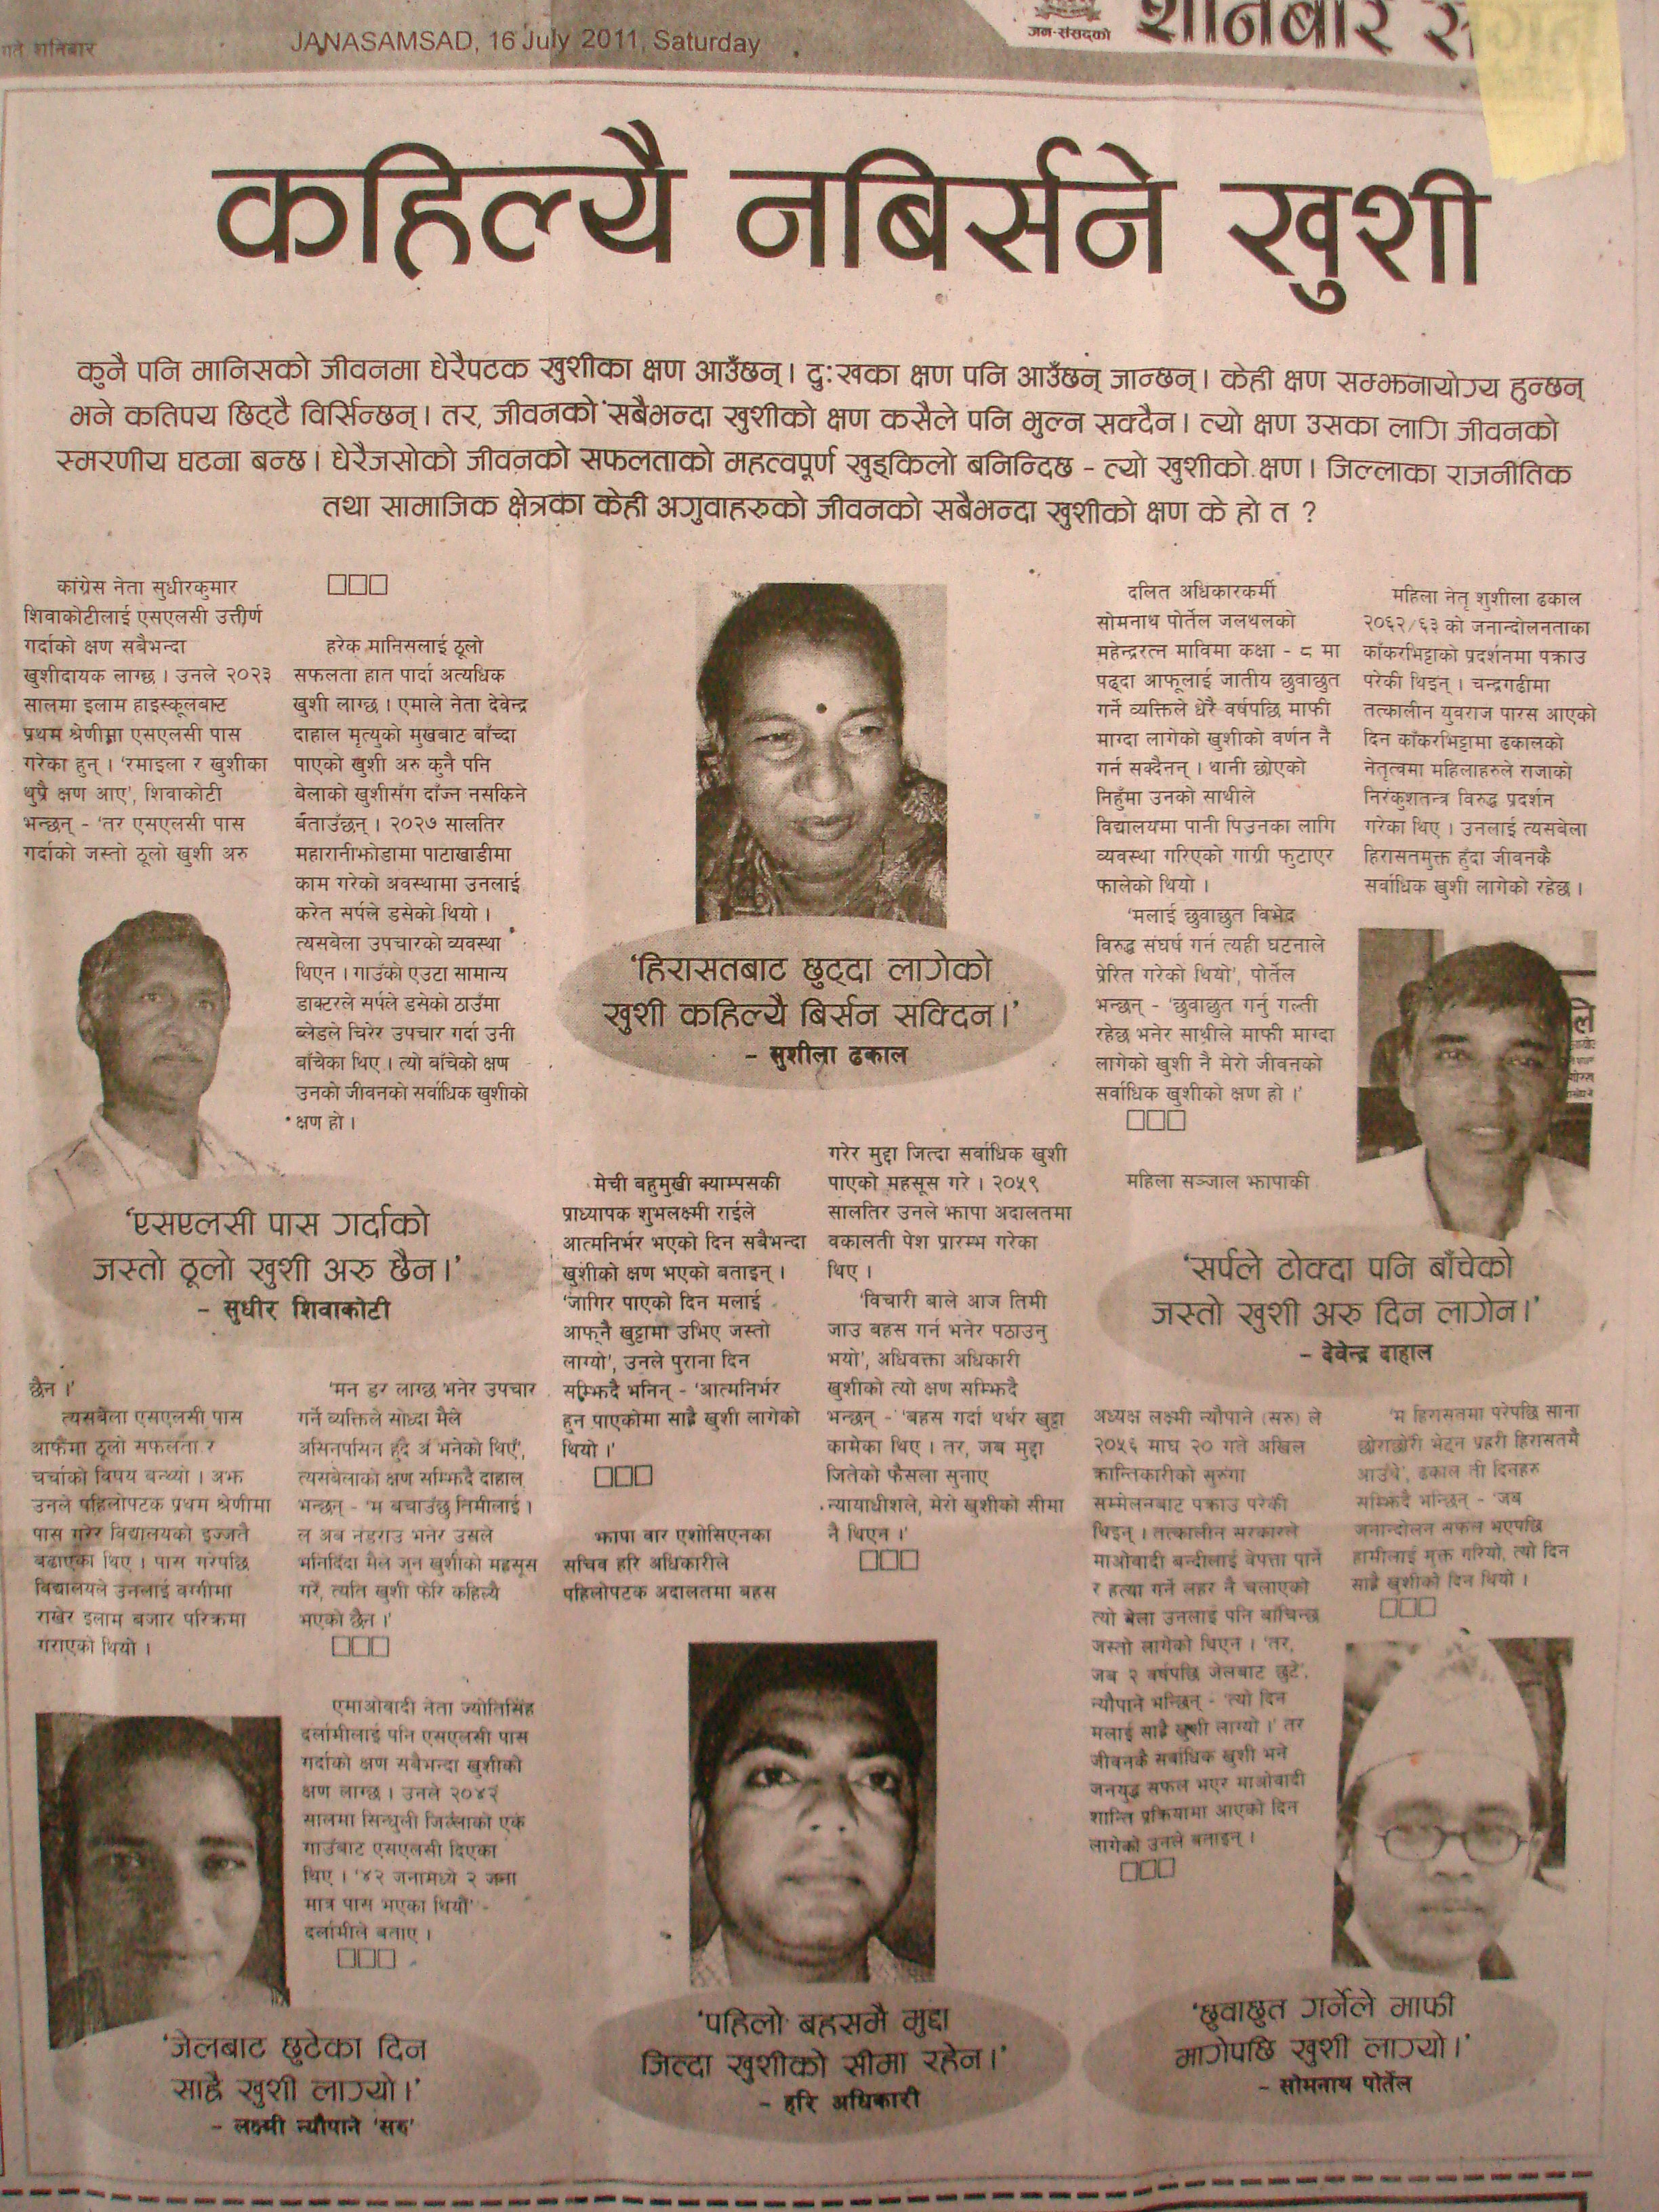 गते शनिबार
JANASAMSAD, 16 July 2011, Saturday
जन-संसदको
शनिबार
कहिल्यै नबिर्सने खुशी
कुनै पनि मानिसको जीवनमा धेरैपटक खुशीका क्षण आउँछन् । दुःखका क्षण पनि आउँछन् जान्छन् । केही क्षण सम्झनायोग्य हुन्छन्
भने कतिपय छिट्टै विर्सिन्छन् । तर, जीवनको सबैभन्दा खुशीको क्षण कसैले पनि भुल्न सक्दैन । त्यो क्षण उसका लागि जीवनको
स्मरणीय घटना बन्छ । धेरैजसोको जीवनको सफलताको महत्वपूर्ण खुड्किलो बनिन्दिछ - त्यो खुशीको क्षण । जिल्लाका राजनीतिक
तथा सामाजिक क्षेत्रका केही अगुवाहरुको जीवनको सबैभन्दा खुशीको क्षण के हो त ?
कांग्रेस नेता सुधीरकुमार
शिवाकोटीलाई एसएलसी उत्तीर्ण
गर्दाको क्षण सबैभन्दा
खुशीदायक लाग्छ । उनले २०२३
सालमा इलाम हाइस्कूलबाट
प्रथम श्रेणीमा एसएलसी पास
गरेका हुन् । 'रमाइला र खुशीका
थुप्रै क्षण आए', शिवाकोटी
भन्छन् - 'तर एसएलसी पास
गर्दाको जस्तो ठूलो खुशी अरु
'एसएलसी पास गर्दाको
जस्तो ठूलो खुशी अरु छैन ।'
- सुधीर शिवाकोटी
छैन ।'
त्यसबेला एसएलसी पास
आफैंमा ठूलो सफलता र
चर्चाको विषय बन्थ्यो । अझ
उनले पहिलोपटक प्रथम श्रेणीमा
पास गरेर विद्यालयको इज्जतै
बढाएका थिए । पास गरेपछि
विद्यालयले उनलाई बग्गीमा
राखेर इलाम बजार परिक्रमा
गराएको थियो ।
□□□
हरेक मानिसलाई ठूलो
सफलता हात पार्दा अत्यधिक
खुशी लाग्छ । एमाले नेता देवेन्द्र
दाहाल मृत्युको मुखबाट बाँच्दा
पाएको खुशी अरु कुनै पनि
बेलाको खुशीसँग दाँज्न नसकिने
बताउँछन् । २०२७ सालतिर
महारानीझोडामा पाटाखाडीमा
काम गरेको अवस्थामा उनलाई
करेत सर्पले डसेको थियो ।
त्यसबेला उपचारको व्यवस्था
थिएन । गाउँको एउटा सामान्य
डाक्टरले सर्पले डसेको ठाउँमा
ब्लेडले चिरेर उपचार गर्दा उनी
बाँचेका थिए । त्यो बाँचेको क्षण
उनको जीवनको सर्वाधिक खुशीको
क्षण हो ।
'मन डर लाग्छ भनेर उपचार
गर्ने व्यक्तिले सोध्दा मैले
असिनपसिन हुँदै अँ भनेको थिएँ',
त्यसबेलाको क्षण सम्झिदै दाहाल
भन्छन् - 'म बचाउँछु तिमीलाई ।
ल अब नडराउ भनेर उसले
भनिदिंदा मैले जुन खुशीको महसूस
गरें, त्यति खुशी फेरि कहिल्यै
भएको छैन ।'
□□□
एमाओवादी नेता ज्योतिसिंह
दर्लामीलाई पनि एसएलसी पास
गर्दाको क्षण सबैभन्दा खुशीको
क्षण लाग्छ । उनले २०४२
सालमा सिन्धुली जिल्लाको एक
गाउँबाट एसएलसी दिएका
थिए । '४२ जनामध्ये २ जना
मात्र पास भएका थियौं'
दर्लामीले बताए ।
□□□
'जेलबाट छुटेका दिन
साह्रै खुशी लाग्यो ।'
- लक्ष्मी न्यौपाने 'सरु'
'हिरासतबाट छुट्दा लागेको
खुशी कहिल्यै बिर्सन सक्दिन ।'
- सुशीला ढकाल
मेची बहुमुखी क्याम्पसकी
प्राध्यापक शुभलक्ष्मी राईले
आत्मनिर्भर भएको दिन सबैभन्दा
खुशीको क्षण भएको बताइन् ।
'जागिर पाएको दिन मलाई
आफ्नै खुट्टामा उभिए जस्तो
लाग्यो', उनले पुराना दिन
सम्झिदै भनिन् - 'आत्मनिर्भर
हुन पाएकोमा साह्रै खुशी लागेको
थियो ।'
□□□
झापा बार एशोसिएनका
सचिव हरि अधिकारीले
पहिलोपटक अदालतमा बहस
गरेर मुद्दा जित्दा सर्वाधिक खुशी
पाएको महसूस गरे । २०५९
सालतिर उनले झापा अदालतमा
वकालती पेश प्रारम्भ गरेका
थिए ।
'विचारी बाले आज तिमी
जाउ बहस गर्न भनेर पठाउनु
भयो', अधिवक्ता अधिकारी
खुशीको त्यो क्षण सम्झिदै
भन्छन् - 'बहस गर्दा थर्थर खुट्टा
कामेका थिए । तर, जब मुद्दा
जितेको फैसला सुनाए
न्यायाधीशले, मेरो खुशीको सीमा
नै थिएन ।'
□□□
'पहिलो बहसमै मुद्दा
जित्दा खुशीको सीमा रहेन ।'
- हरि अधिकारी
दलित अधिकारकर्मी
सोमनाथ पोर्तेल जलथलको
महेन्द्ररत्न माविमा कक्षा - ८ मा
पढ्दा आफूलाई जातीय छुवाछुत
गर्ने व्यक्तिले धेरै वर्षपछि माफी
माग्दा लागेको खुशीको वर्णन नै
गर्न सक्दैनन् । धानी छोएको
निहुँमा उनको साथीले
विद्यालयमा पानी पिउनका लागि
व्यवस्था गरिएको गाग्री फुटाएर
फालेको थियो ।
'मलाई छुवाछुत विभेद
विरुद्ध संघर्ष गर्न त्यही घटनाले
प्रेरित गरेको थियो', पोर्तेल
भन्छन् - 'छुवाछुत गर्नु गल्ती
रहेछ भनेर साथीले माफी माग्दा
लागेको खुशी नै मेरो जीवनको
सर्वाधिक खुशीको क्षण हो ।'
□□□
महिला सञ्जाल झापाकी
'सर्पले टोक्दा पनि बाँचेको
जस्तो खुशी अरु दिन लागेन ।'
- देवेन्द्र दाहाल
अध्यक्ष लक्ष्मी न्यौपाने (सरु) ले
२०५६ माघ २० गते अखिल
क्रान्तिकारीको सुरुंगा
सम्मेलनबाट पक्राउ परेकी
थिइन् । तत्कालीन सरकारले
माओवादी बन्दीलाई बेपत्ता पार्ने
र हत्या गर्ने लहर नै चलाएको
त्यो बेला उनलाई पनि बाँचिन्छ
जस्तो लागेको थिएन । 'तर,
जब २ वर्षपछि जेलबाट छुटें',
न्यौपाने भन्छिन् - 'त्यो दिन
मलाई साह्रै खुशी लाग्यो ।' तर
जीवनकै सर्वाधिक खुशी भने
जनयुद्ध सफल भएर माओवादी
शान्ति प्रक्रियामा आएको दिन
लागेको उनले बताइन् ।
□□□
महिला नेतृ शुशीला ढकाल
२०६२/६३ को जनान्दोलनताका
काँकरभिट्टाको प्रदर्शनमा पक्राउ
परेकी थिइन् । चन्द्रगढीमा
तत्कालीन युवराज पारस आएको
दिन काँकरभिट्टामा ढकालको
नेतृत्वमा महिलाहरुले राजाको
निरंकुशतन्त्र विरुद्ध प्रदर्शन
गरेका थिए । उनलाई त्यसबेला
हिरासतमुक्त हुँदा जीवनकै
सर्वाधिक खुशी लागेको रहेछ ।
'म हिरासतमा परेपछि साना
छोराछोरी भेट्न प्रहरी हिरासतमै
आउँथे', ढकाल ती दिनहरु
सम्झिदै भन्छिन् - 'जब
जनान्दोलन सफल भएपछि
हामीलाई मुक्त गरियो, त्यो दिन
साह्रै खुशीको दिन थियो ।
□□□
'छुवाछुत गर्नेले माफी
मागेपछि खुशी लाग्यो ।'
- सोमनाथ पोर्तेल